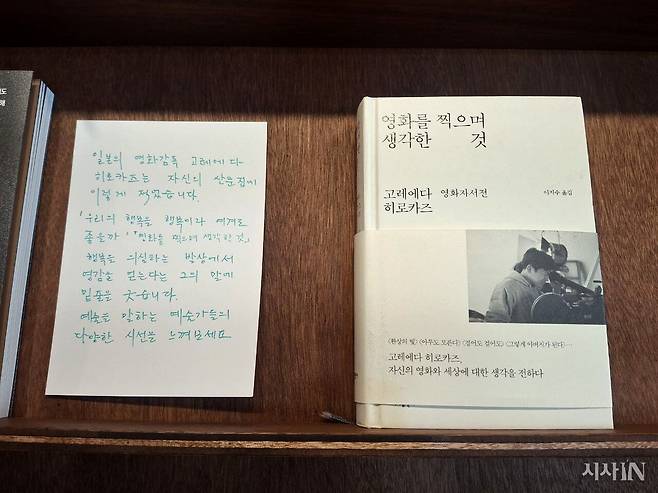 도
해
일본의 영화감독 고레에다
히로카즈는 자신의 산문집에
이렇게 적었습니다.
'우리의 행복을 행복이라 여겨도
좋을까' 「영화를 찍으며 생각한 것」
행복을 의심하는 발상에서
영감을 얻는다는 그의 말에
밑줄을 긋습니다.
예술을 말하는 예술가들의
다양한 시선을 느껴보세요
영화를 찍으며
생각한 것
고레에다 영화자서전 이지수 옮김
히로카즈
〈환상의 빛〉 〈아무도 모른다〉 〈걸어도 걸어도〉 〈그렇게 아버지가 된다〉…
고레에다 히로카즈,
자신의 영화와 세상에 대한 생각을 전하다
시사IN